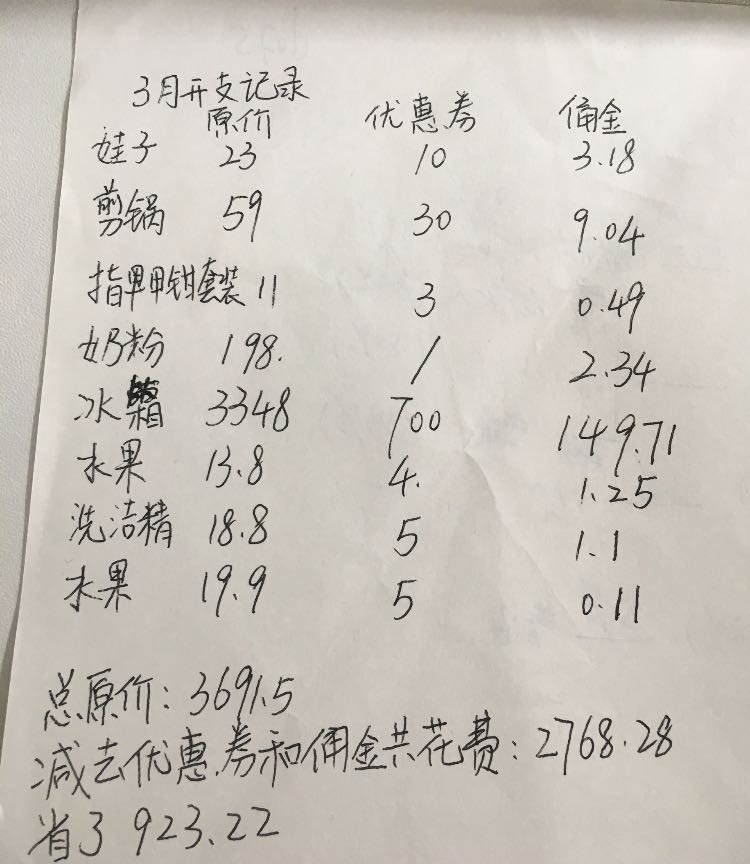 3月开支记录
原价 优惠券 佣金
娃子 23 10 3.18
剪锅 59 30 9.04
指甲钳套装 11 3 0.49
奶粉 198. / 2.34
冰箱 3348 700 149.71
水果 13.8 4. 1.25
洗洁精 18.8 5 1.1
水果 19.9 5 0.11
总原价：3691.5
减去优惠券和佣金共花费：2768.28
省3 923.22